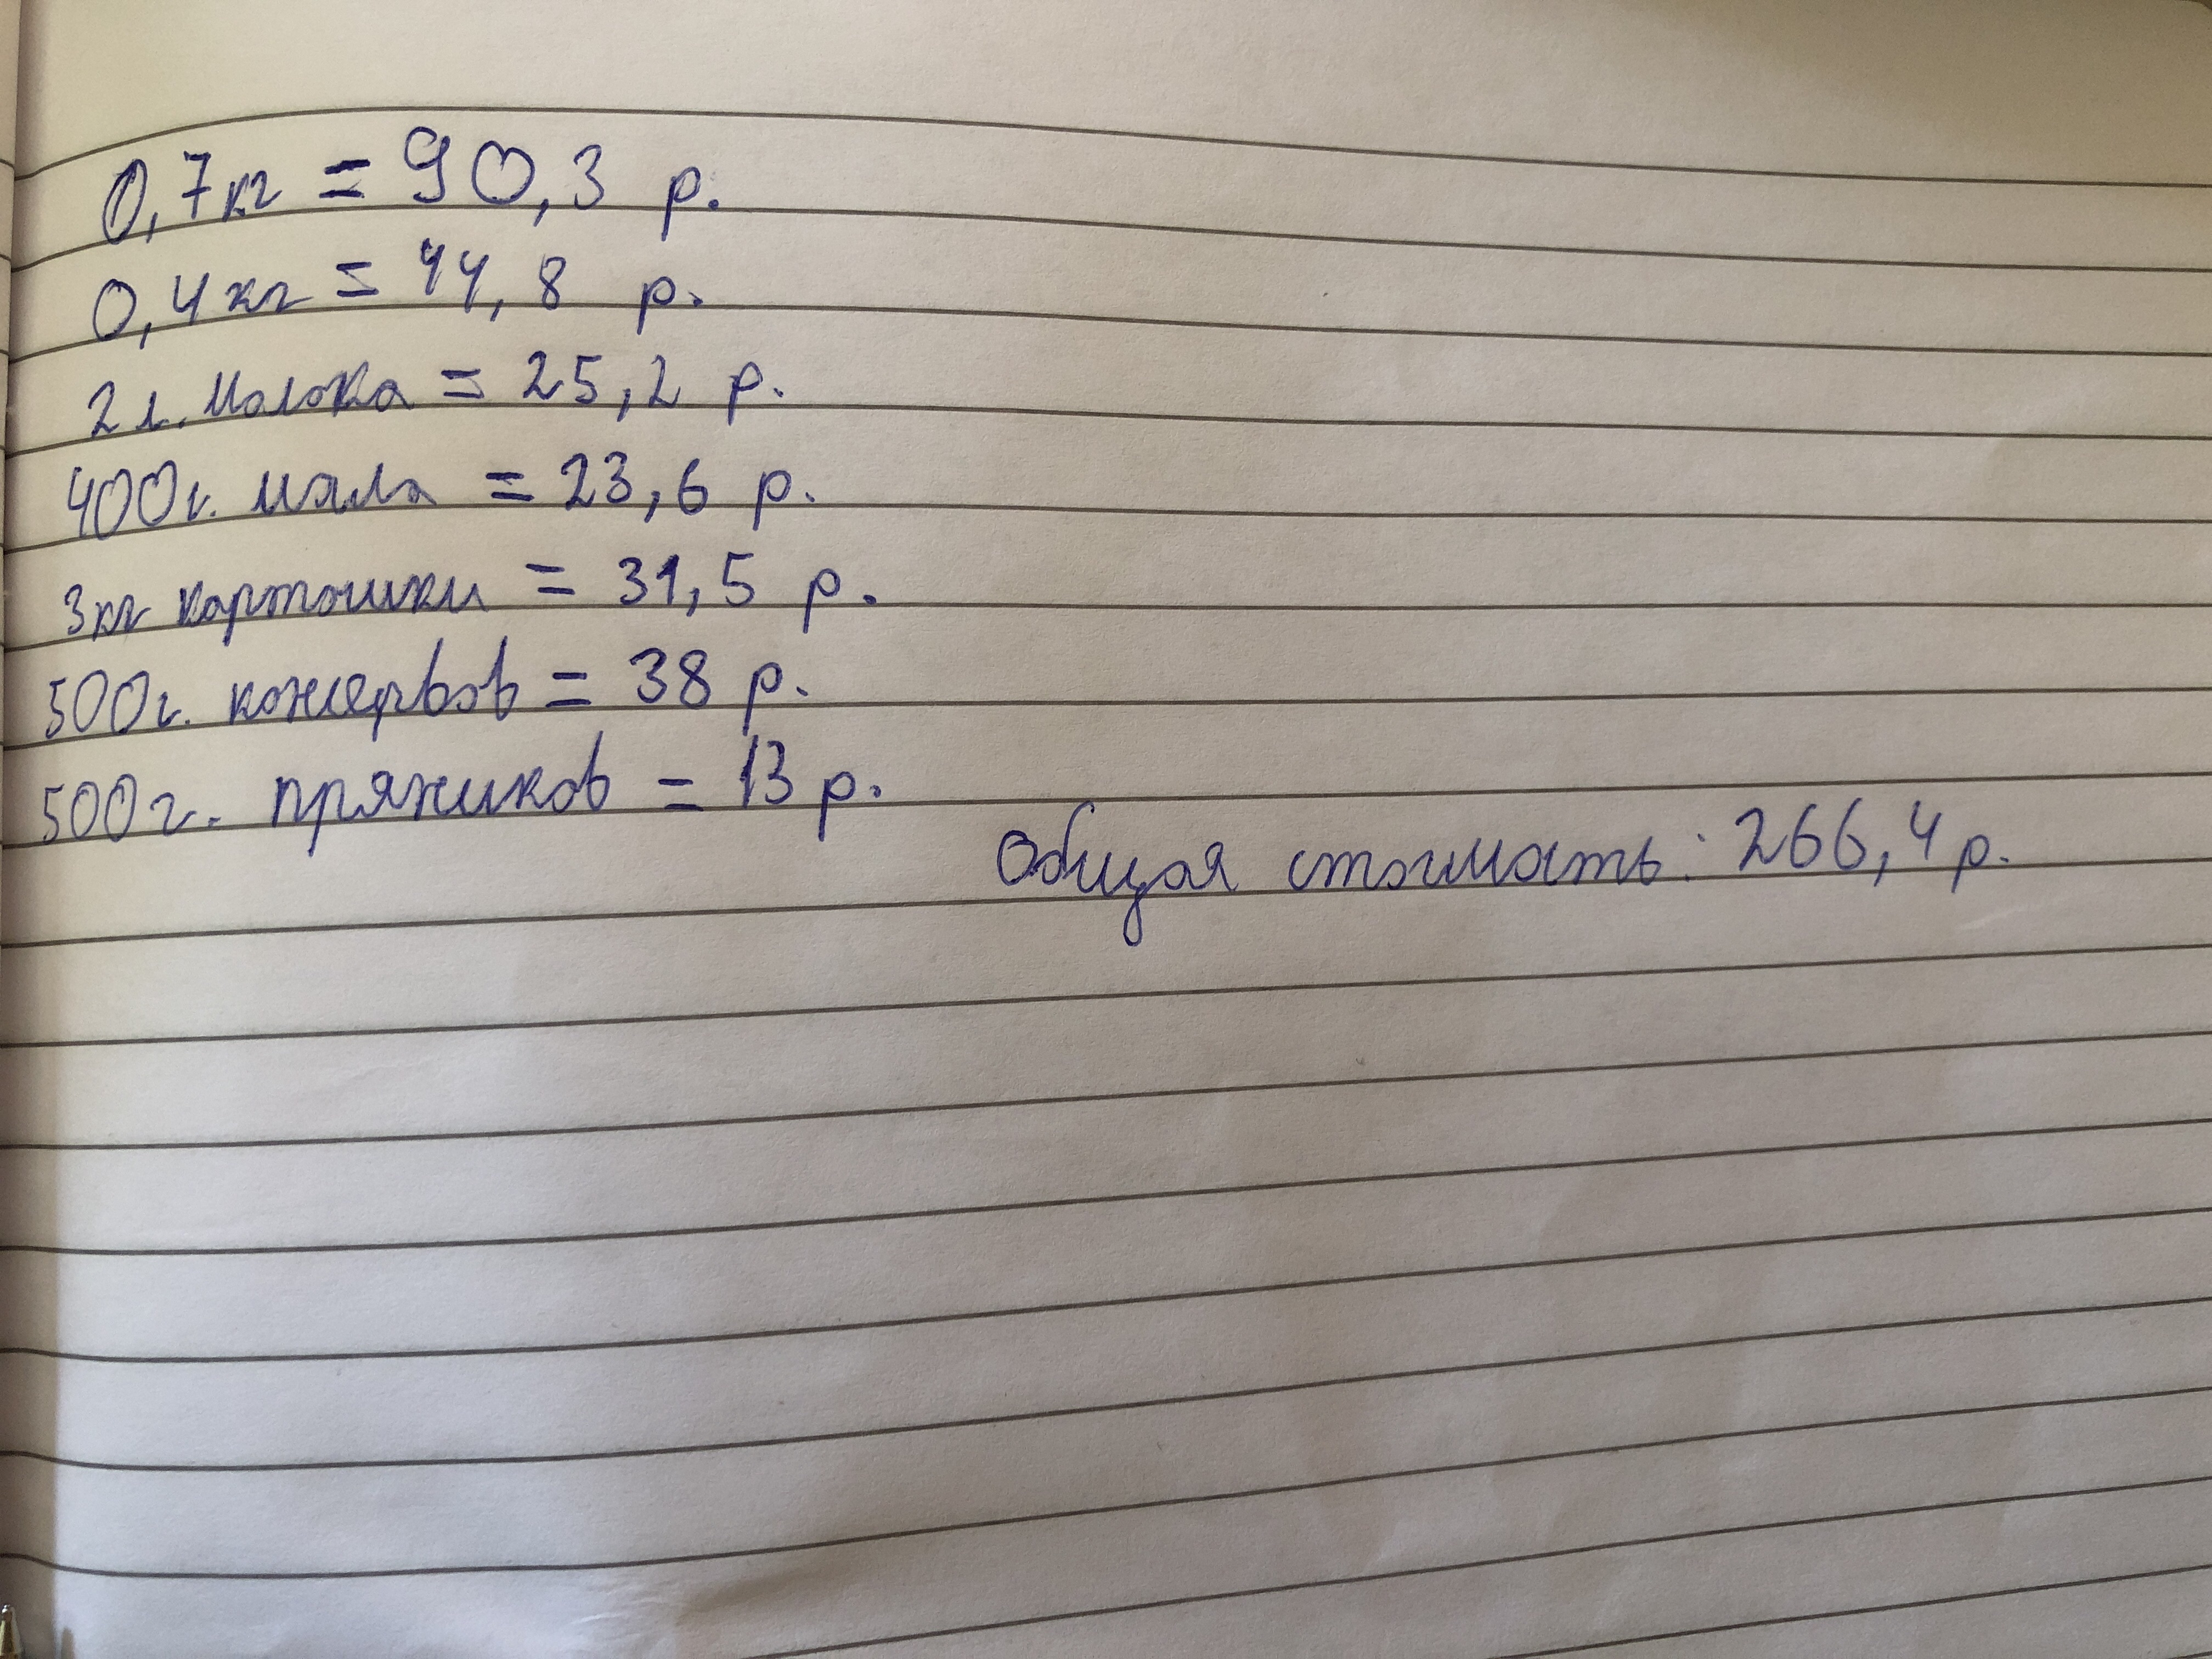 0,7кг = 90,3 р.
0,4кг = 44,8 р.
2 л. молока = 25,2 р.
400г. = 23,6 р.
3кг картошки = 31,5 р.
500г. консервов = 38 р.
500г. пряников = 13 р.
Общая стоимость: 266,4 р.